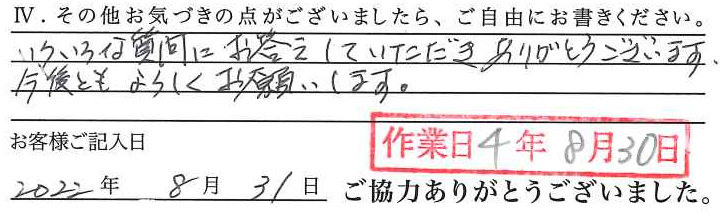 Ⅳ．その他お気づきの点がございましたら、ご自由にお書きください。
いろいろな質問にお答えしていただきありがとうございます。
今後ともよろしくお願いします。
お客様ご記入日
作業日4年8月30日
2022年8月31日 ご協力ありがとうございました。